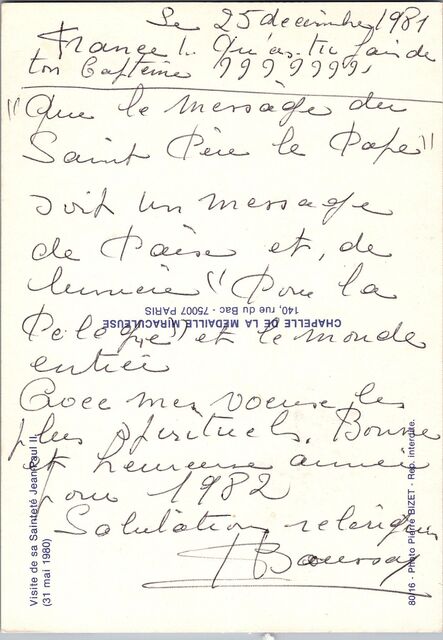 Le 25 decembre 1981
France !. Qu'as-tu fais de
ton Baptême ????????
"Que le message du
Saint Père le Pape"
soit un message
de Paix et, de
lumière "Pour la
et le monde
CHAPELLE DE LA MÉDAILLE MIRACULEUSE
140, rue du Bac - 75007 PARIS
entier
Avec mes voeux les
plus spirituels. Bonne
et heureuse année
pour 1982
Salutation
Visite de sa Sainteté Jean-Paul II
(31 mai 1980)
80/16 - Photo Pierre BIZET - Rep. interdite.